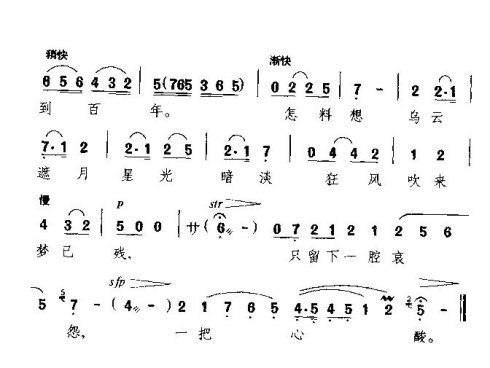 稍快 渐快
6 5 6 4 3 2 | 5 (7 6 5 3 6 5) | 0 2 2 5 | 7 - | 2 2·1 |
到 百 年。 怎 料 想 乌 云
7·1 2 | 2·1 2 5 | 2·1 7 | 0 4 4 2 | 1 2 |
遮 月 星 光 暗 淡 狂 风 吹 来
慢 p str
4 3 2 | 5 0 0 | 廿 ( 6 - ) 0 7 2 1 2 1 2 2 5 6
梦 已 残, 只 留 下 一 腔 哀
sfp
5 7 - (4 - -) 2 1 7 6 5 4·5 4 5 1 2 5 -
怨, 一 把 心 酸。